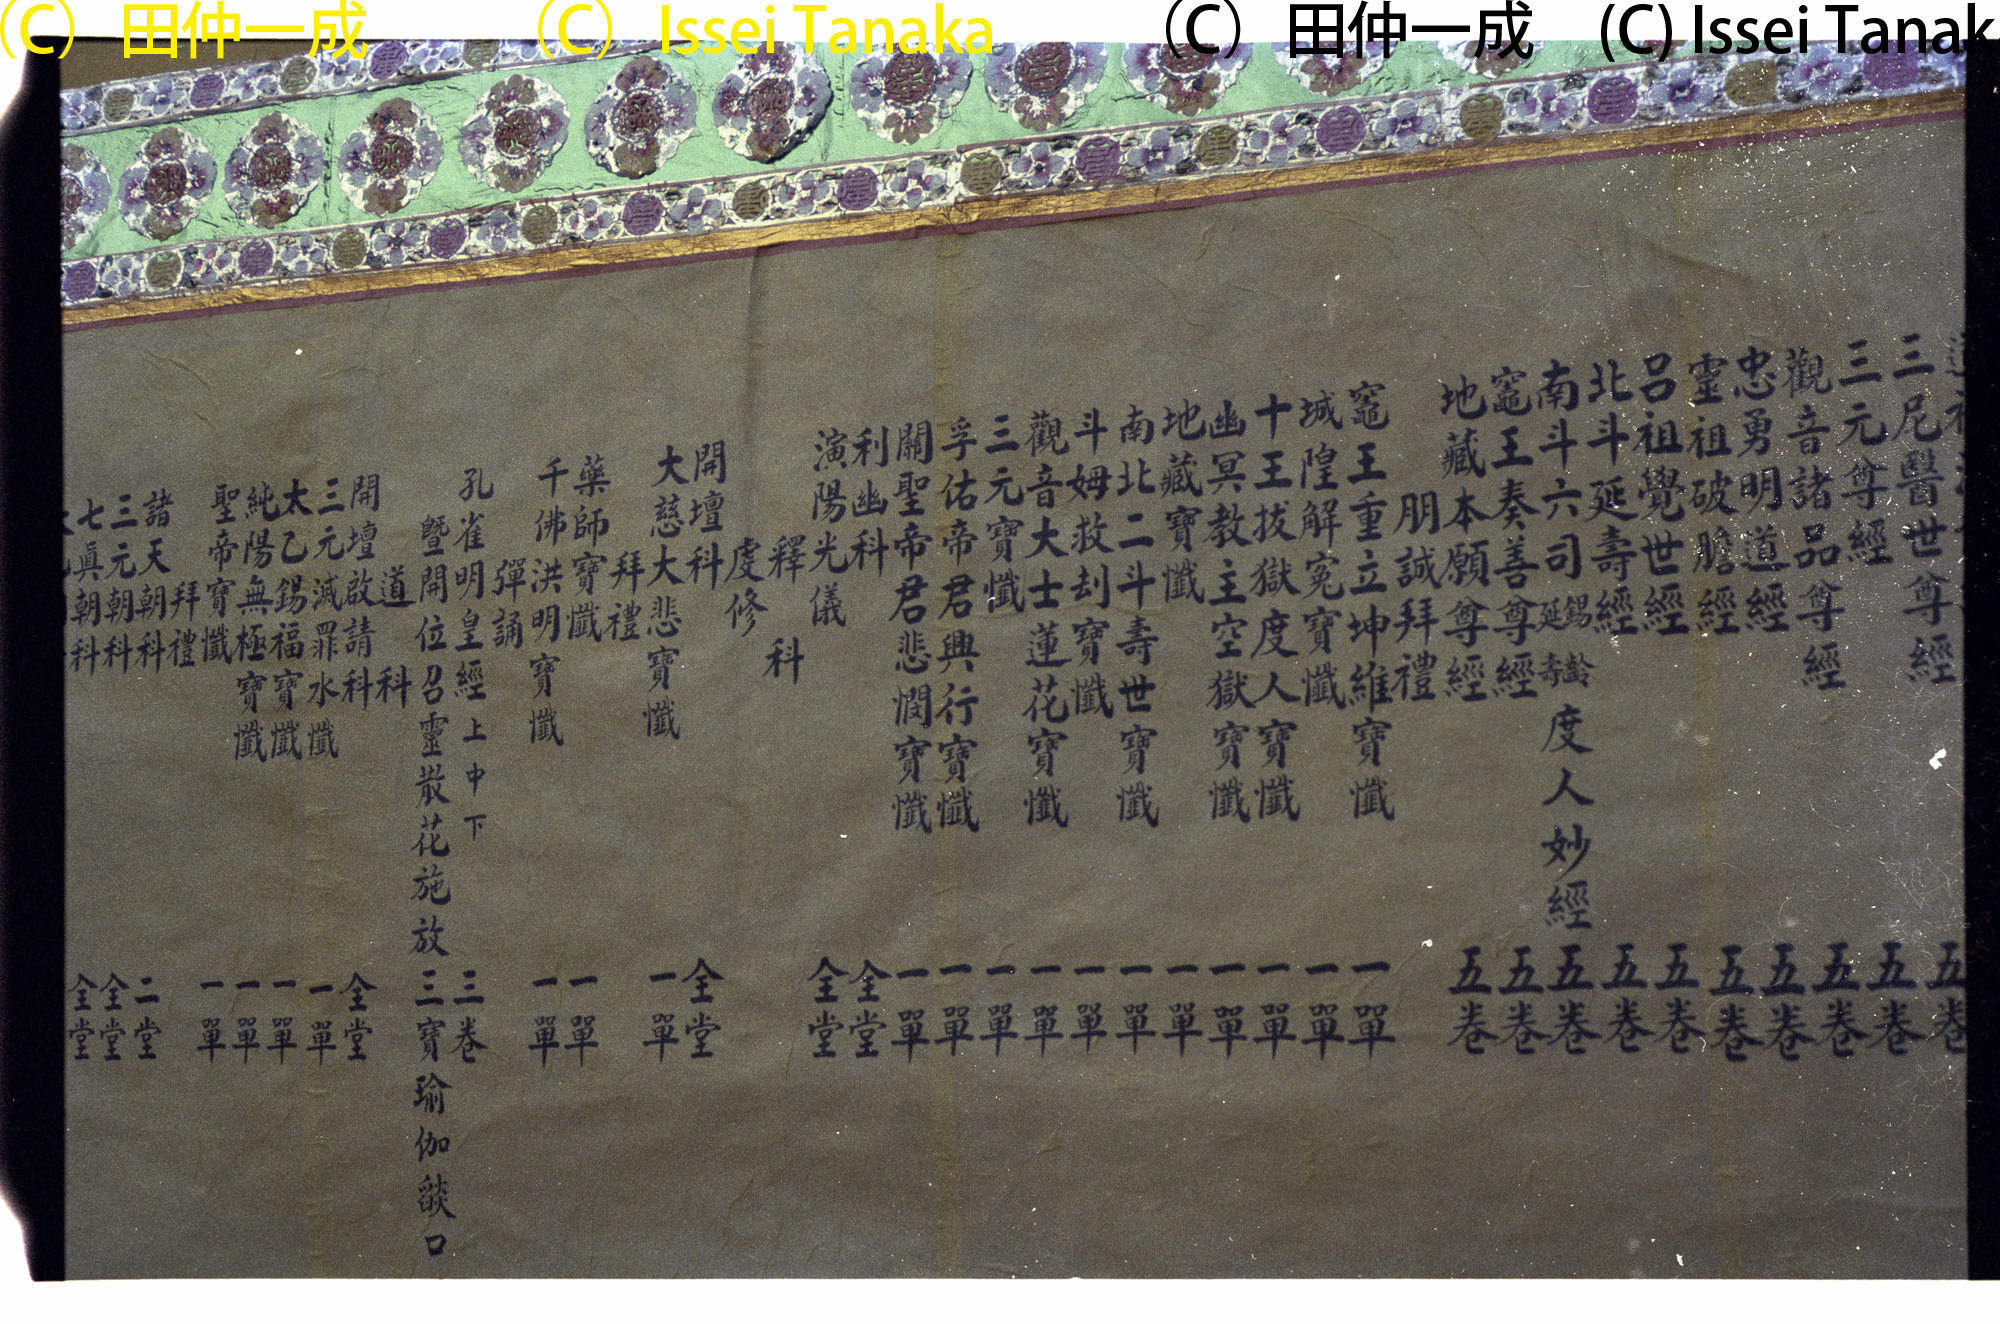 (C) 田仲一成 (C) Issei Tanaka (C) 田仲一成 (C) Issei Tanak
五卷
三尼醫世尊經 五卷
三元尊經 五卷
觀音諸品尊經 五卷
忠勇明道經 五卷
靈祖破膽經 五卷
呂祖覺世經 五卷
北斗延壽經 五卷
南斗六司錫齡延壽度人妙經 五卷
竈王奏善尊經 五卷
地藏本願尊經 五卷
朋誠拜禮
竈王重立坤維寶懺 一單
城隍解冤寶懺 一單
十王拔獄度人寶懺 一單
幽冥教主空獄寶懺 一單
地藏寶懺 一單
南北二斗壽世寶懺 一單
斗姆救刦寶懺 一單
觀音大士蓮花寶懺 一單
三元寶懺 一單
孚佑帝君興行寶懺 一單
關聖帝君悲憫寶懺 一單
利幽科 全堂
演陽光儀 全堂
釋科
虔修
開壇科 全堂
大慈大悲寶懺 一單
拜禮
藥師寶懺 一單
千佛洪明寶懺 一單
彈誦
孔雀明皇經上中下 三卷
暨開位召靈散花施放三寶瑜伽燄口
道科
開壇啟請科 全堂
三元滅罪水懺 一單
太乙錫福寶懺 一單
純陽無極寶懺 一單
聖帝寶懺 一單
拜禮
諸天朝科 二堂
三元朝科 全堂
七眞朝科 全堂